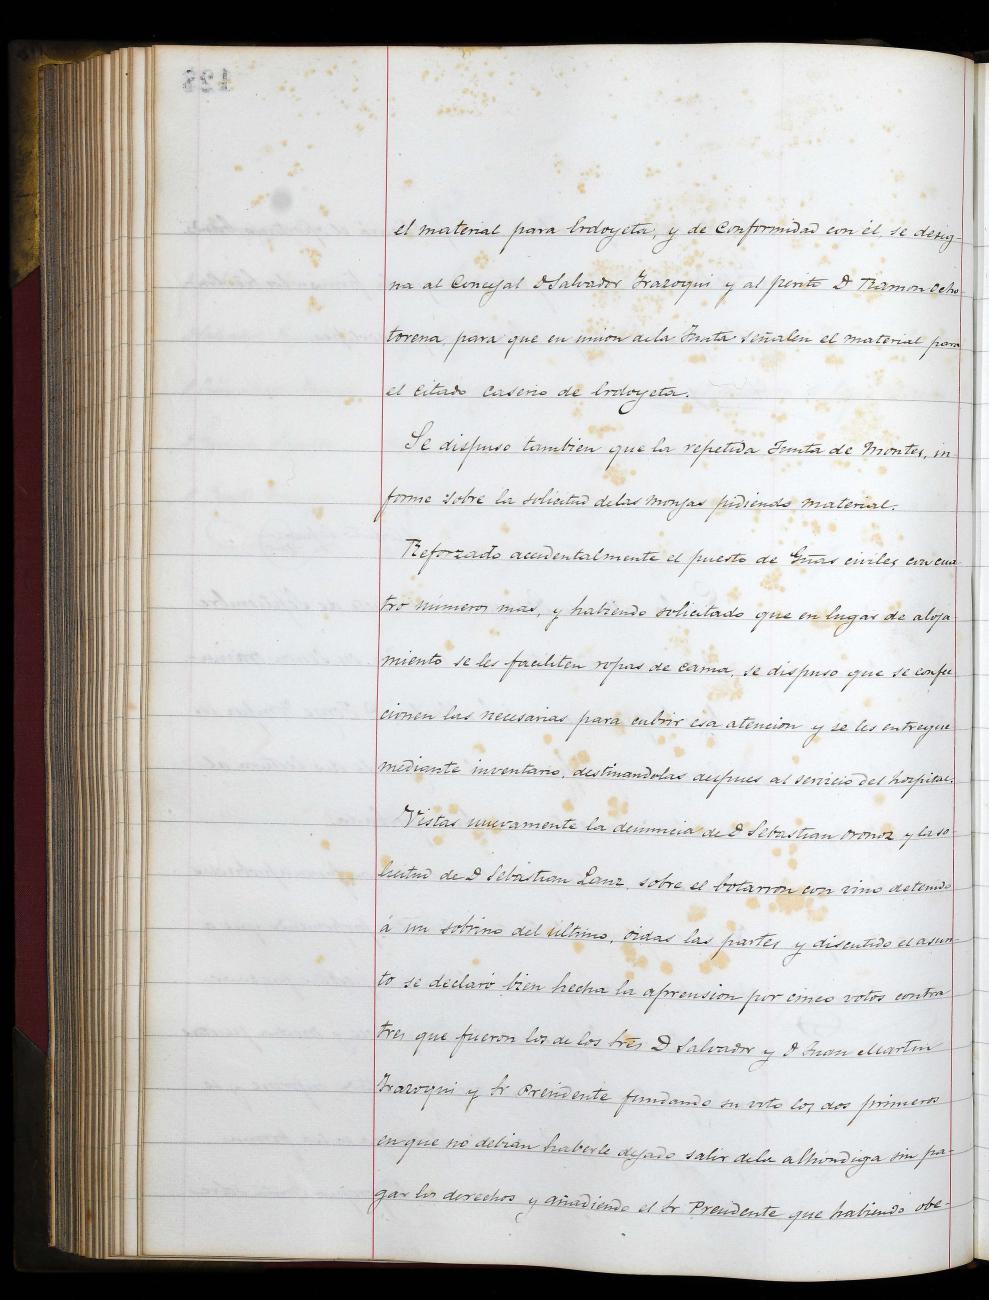 el material para Ordoyeta, y de conformidad con él, se desig-
na al Concejal D Salvador Irazoqui y al périto D Ramon Ocho
torena, para que en union dela Junta señalen el material para
el citado caserio de Ordoyeta.
Se dispuso tambien que la repetida Junta de Montes, in-
forme sobre la solicitud delas monjas pidiendo material.
Reforzado accidentalmente el puesto de Guas civiles con cua
tro números mas, y habiendo solicitado que en lugar de aloja
miento se les faciliten ropas de cama, se dispuso que se confec
cionen las necesarias para cubrir esa atencion y se les entregue
mediante inventario, destinandolas despues al servicio del hospital.
Vistas nuevamente la denuncia de D Sebastian Oronoz y la so-
licitud de D Sebastian Lanz, sobre el botarron con vino detenido
á un sobrino del último, oidas las partes y discutido el asun-
to se declaró bien hecha la aprension por cinco votos contra
tres que fueron los de los Sres D Salvador y D Juan Martin
Irazoqui y Sr Presidente fundando su voto los dos primeros
en que no debian haberle dejado salir dela alhondiga sin pa-
gar los derechos y añadiendo el Sr Presidente que habiendo obe-